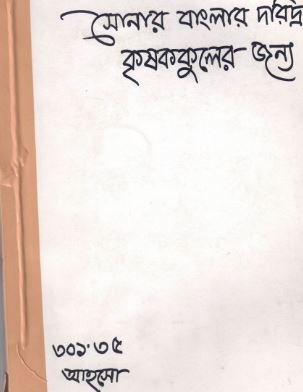 সোনার বাংলার দরিদ্র
কৃষককুলের জন্য
৩০১.৩৫
আহসো